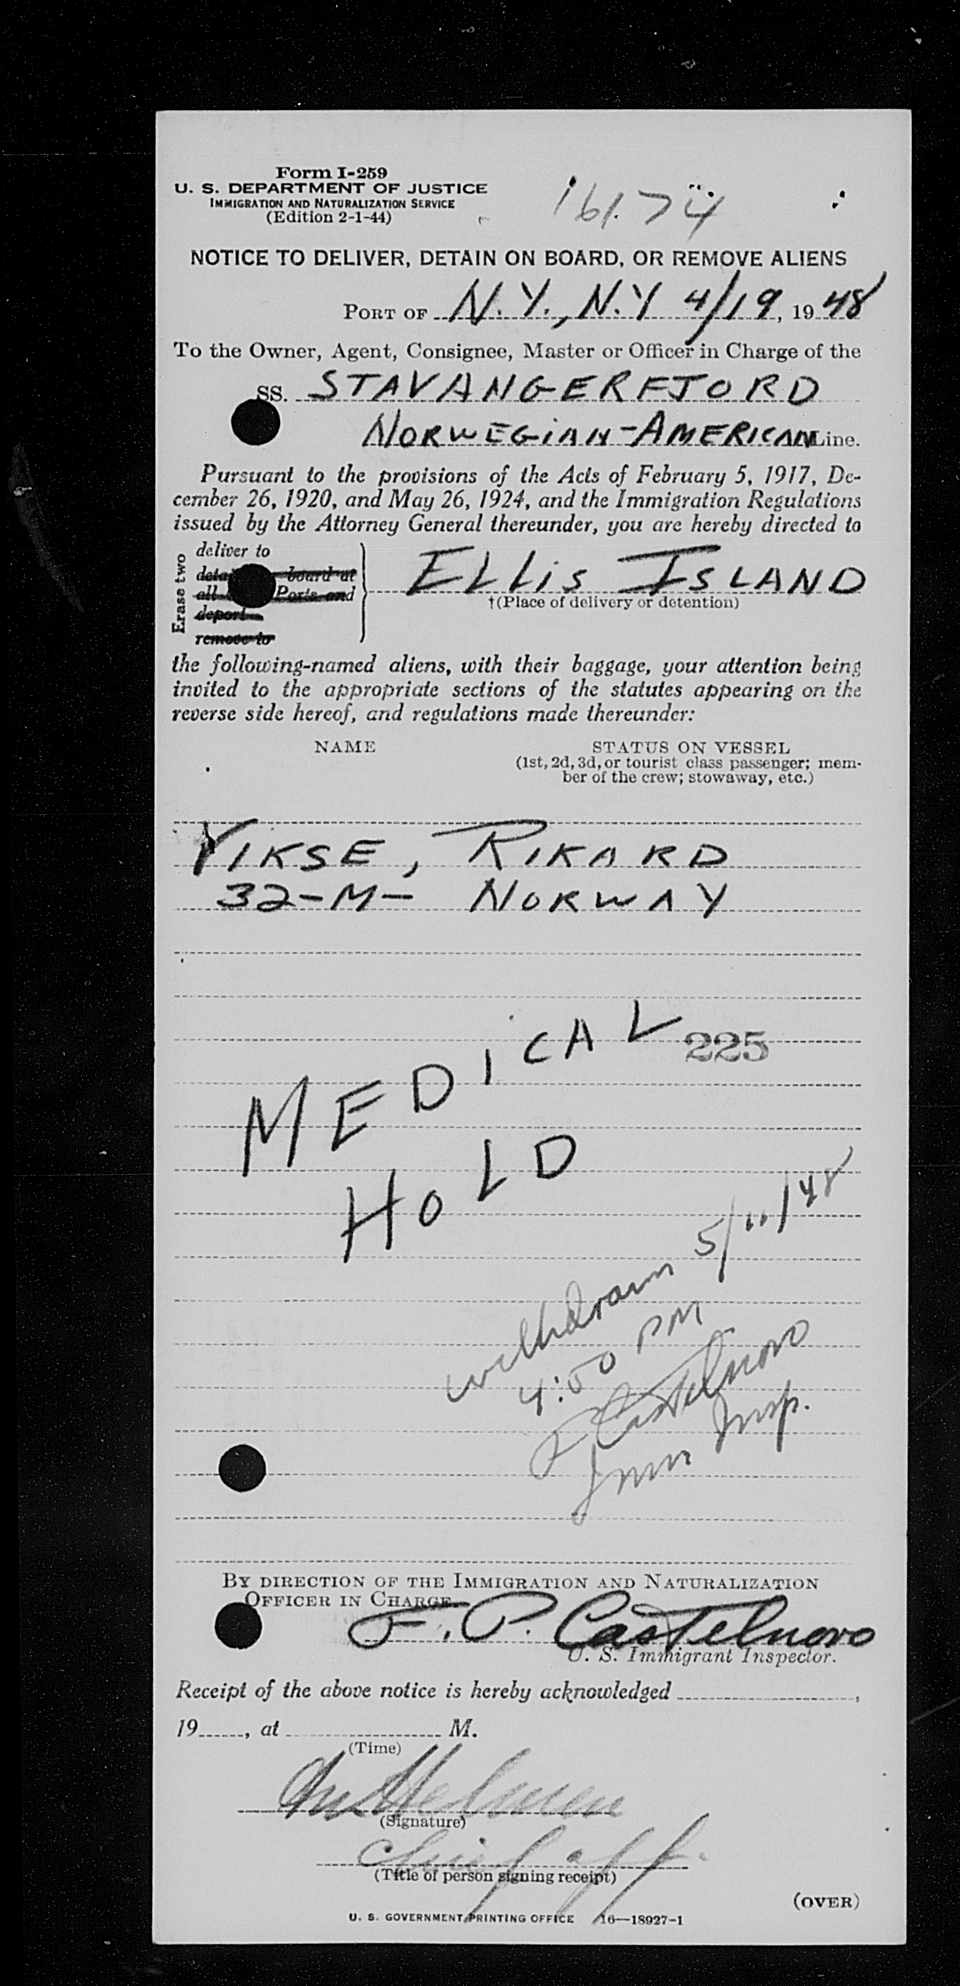 Form I-259
U. S. DEPARTMENT OF JUSTICE
IMMIGRATION AND NATURALIZATION SERVICE
(Edition 2-1-44)
16174
NOTICE TO DELIVER, DETAIN ON BOARD, OR REMOVE ALIENS
PORT OF N.Y., N.Y 4/19, 1948
To the Owner, Agent, Consignee, Master or Officer in Charge of the
SS. STAVANGERFJORD
NORWEGIAN-AMERICAN Line.
Pursuant to the provisions of the Acts of February 5, 1917, De-
cember 26, 1920, and May 26, 1924, and the Immigration Regulations
issued by the Attorney General thereunder, you are hereby directed to
Erase two
deliver to
board at
all Ports and
deport
remove to
ELLIS ISLAND
†(Place of delivery or detention)
the following-named aliens, with their baggage, your attention being
invited to the appropriate sections of the statutes appearing on the
reverse side hereof, and regulations made thereunder:
NAME
STATUS ON VESSEL
(1st, 2d, 3d, or tourist class passenger; mem-
ber of the crew; stowaway, etc.)
VIKSE, RIKARD
32-M- NORWAY
MEDICAL
225
HOLD
withdrawn 5/11/48
4:00 PM
F Castelnovo
Imm Insp.
BY DIRECTION OF THE IMMIGRATION AND NATURALIZATION
OFFICER IN CHARGE
F. P. Castelnovo
U. S. Immigrant Inspector.
Receipt of the above notice is hereby acknowledged
19 , at M.
(Time)
(Signature)
Chief off.
(Title of person signing receipt)
(OVER)
U. S. GOVERNMENT PRINTING OFFICE 16—18927-1